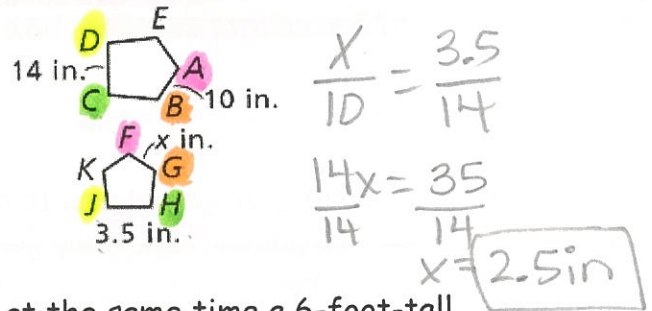 E
D
14 in.
A
C
B
10 in.
F
x in.
K
G
J
H
3.5 in.
X/10 = 3.5/14
14x/14 = 35/14
x = 2.5in
at the same time a 6-foot-tall